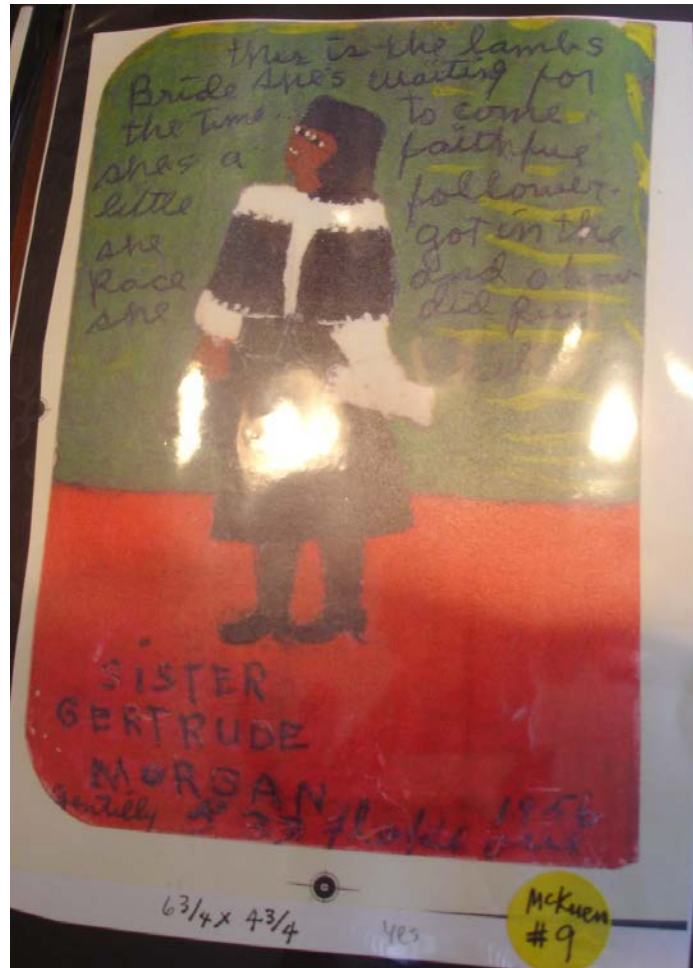 this is the lambs
Bride she's waiting for
the time.. to come.
shes a faithful
little follower.
she got in the
Race and o how
she did Run
SISTER
GERTRUDE
MORGAN
Gentilly 1956
6 3/4 x 4 3/4
yes
McKuen
#9